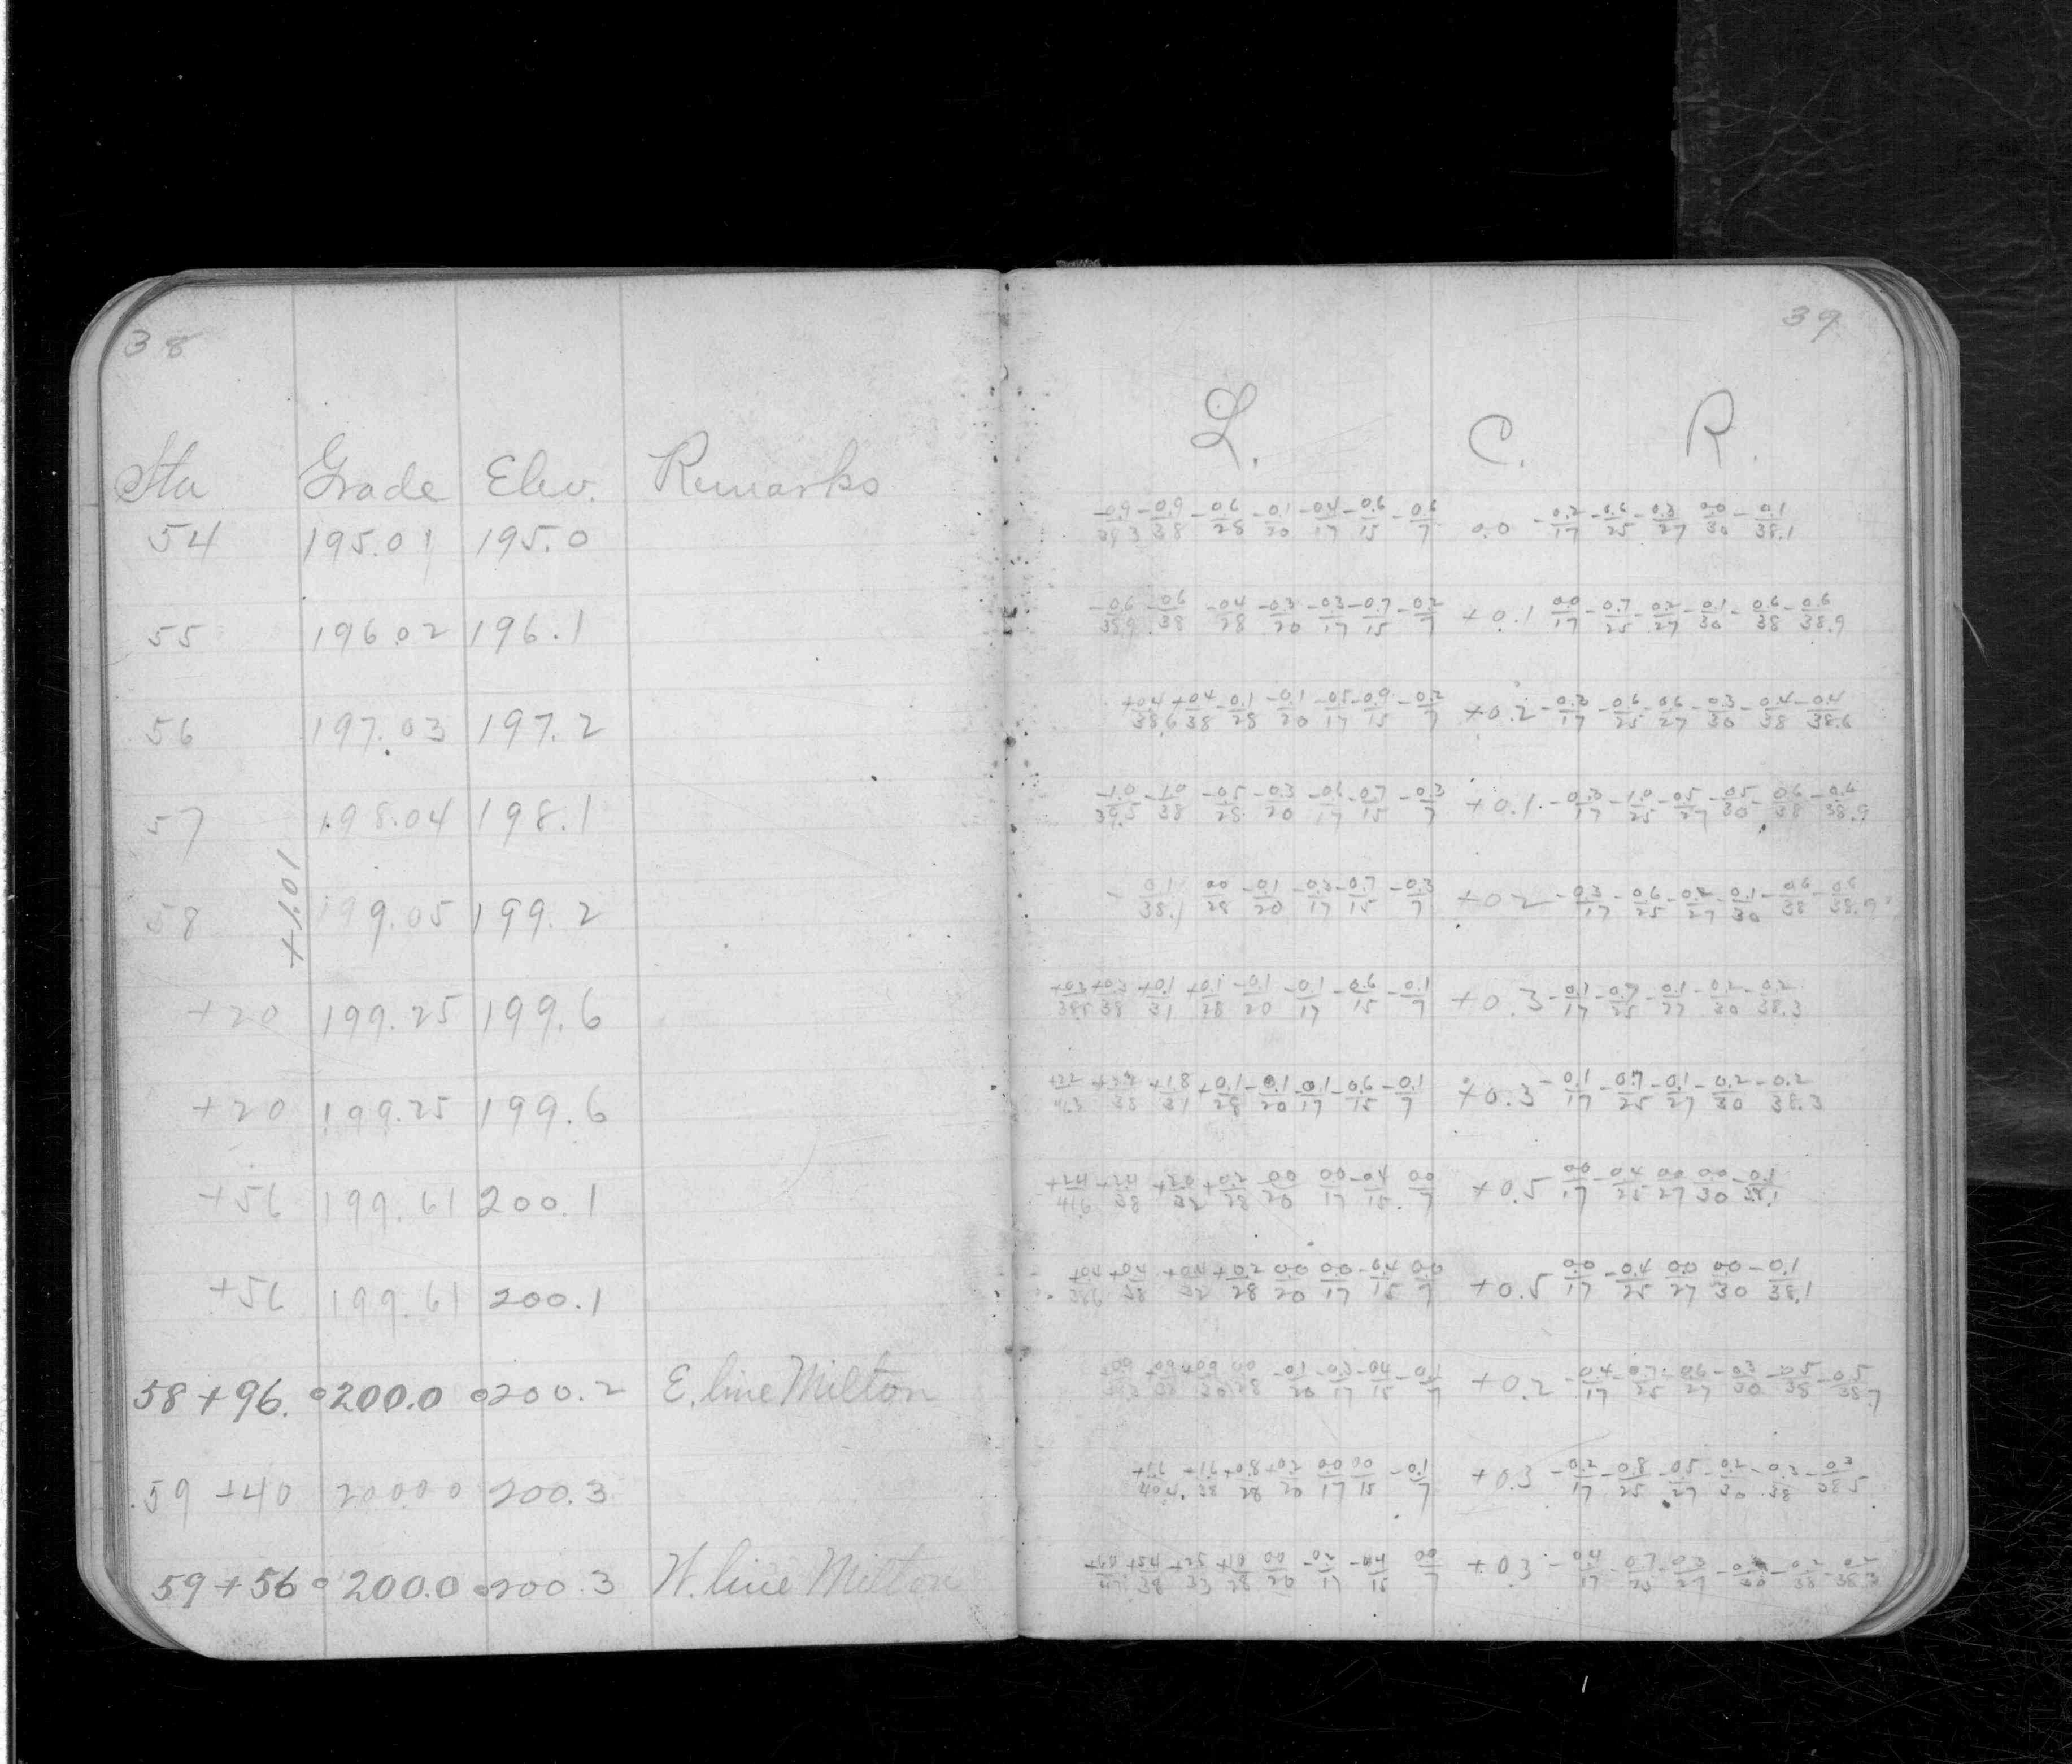 38
Sta Grade Elev. Remarks
54 195.01 195.0
55 196.02 196.1
56 197.03 197.2
57 198.04 198.1
+1.01
58 199.05 199.2
+20 199.25 199.6
+20 199.25 199.6
+56 199.61 200.1
+56 199.61 200.1
58+96. 200.0 200.2 E. line Milton
59+40 200.00 200.3
59+56 200.0 200.3 W. line Milton
39
L. C. R.
-0.9/38 -0.6/28 -0.1/20 -0.4/17 -0.6/15 -0.6/7 0.0 -0.2/17 -0.6/25 -0.3/27 0.0/30 -0.1/38.1
-0.6/38.9 -0.6/38 -0.4/28 -0.3/20 -0.3/17 -0.7/15 -0.2/7 +0.1 0.0/17 -0.7/25 -0.2/27 -0.1/30 -0.6/38 -0.6/38.9
+0.4/38.6 +0.4/38 -0.1/28 -0.1/20 -0.5/17 -0.9/15 -0.2/7 +0.2 -0.2/17 -0.6/25 -0.6/27 -0.3/30 -0.4/38 -0.4/38.6
-1.0/39.5 -1.0/38 -0.5/28 -0.3/20 -0.6/17 -0.7/15 -0.3/7 +0.1 -0.3/17 -1.0/25 -0.5/27 -0.5/30 -0.6/38 -0.6/38.9
-0.1/38.1 0.0/28 -0.1/20 -0.3/17 -0.7/15 -0.3/7 +0.2 -0.3/17 -0.6/25 -0.2/27 -0.1/30 -0.6/38 -0.6/38.9
+0.3/38.5 +0.3/38 +0.1/31 +0.1/28 -0.1/20 -0.1/17 -0.6/15 -0.1/7 +0.3 -0.1/17 -0.7/25 -0.1/27 -0.2/30 -0.2/38.3
+2.2/41.3 +2.2/38 +1.8/31 +0.1/28 -0.1/20 -0.1/17 -0.6/15 -0.1/7 +0.3 -0.1/17 -0.7/25 -0.1/27 -0.2/30 -0.2/38.3
+2.4/41.6 +2.4/38 +2.0/32 +0.2/28 0.0/20 0.0/17 -0.4/15 0.0/7 +0.5 0.0/17 -0.4/25 0.0/27 0.0/30 -0.1/38.1
+0.4/38.6 +0.4/38 +0.4/32 +0.2/28 0.0/20 0.0/17 -0.4/15 0.0/7 +0.5 0.0/17 -0.4/25 0.0/27 0.0/30 -0.1/38.1
-0.1/20 -0.3/17 -0.4/15 -0.1/7 +0.2 -0.4/17 -0.7/25 -0.6/27 -0.3/30 -0.5/38 -0.5/38.7
+1.6/40.4 +1.6/38 +0.8/28 +0.2/20 0.0/17 0.0/15 -0.1/7 +0.3 -0.2/17 -0.8/25 -0.5/27 -0.2/30 -0.3/38 -0.3/38.5
+5.4/38 +2.5/33 +1.0/28 0.0/20 -0.2/17 -0.4/15 0.0/7 +0.3 -0.4/17 -0.7/25 -0.3/27 -0.2/38 -0.2/38.3